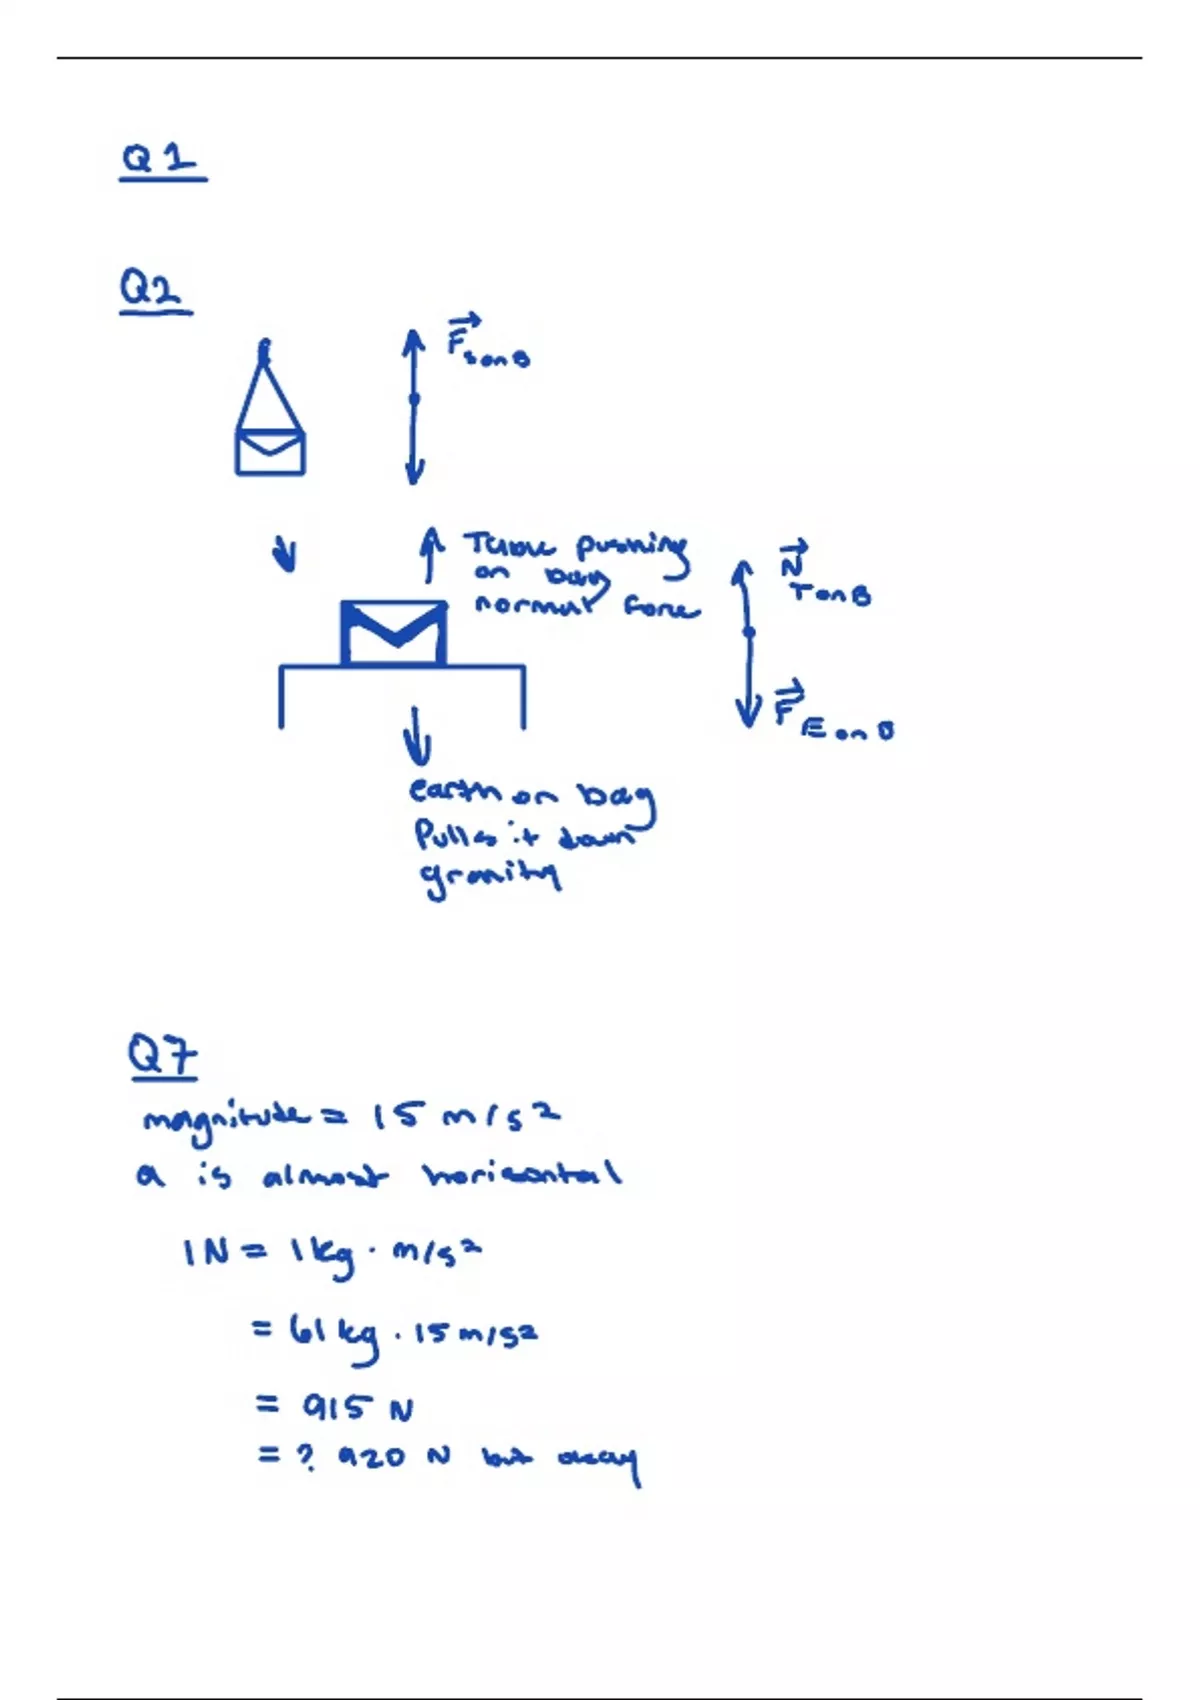 Q1
Q2
F S on B
Table pushing
on bag
normal force
N T on B
F E on B
earth on bag
Pulls it down
gravity
Q7
magnitude = 15 m/s²
a is almost horizontal
1 N = 1 kg · m/s²
= 61 kg · 15 m/s²
= 915 N
= ? 920 N but okay